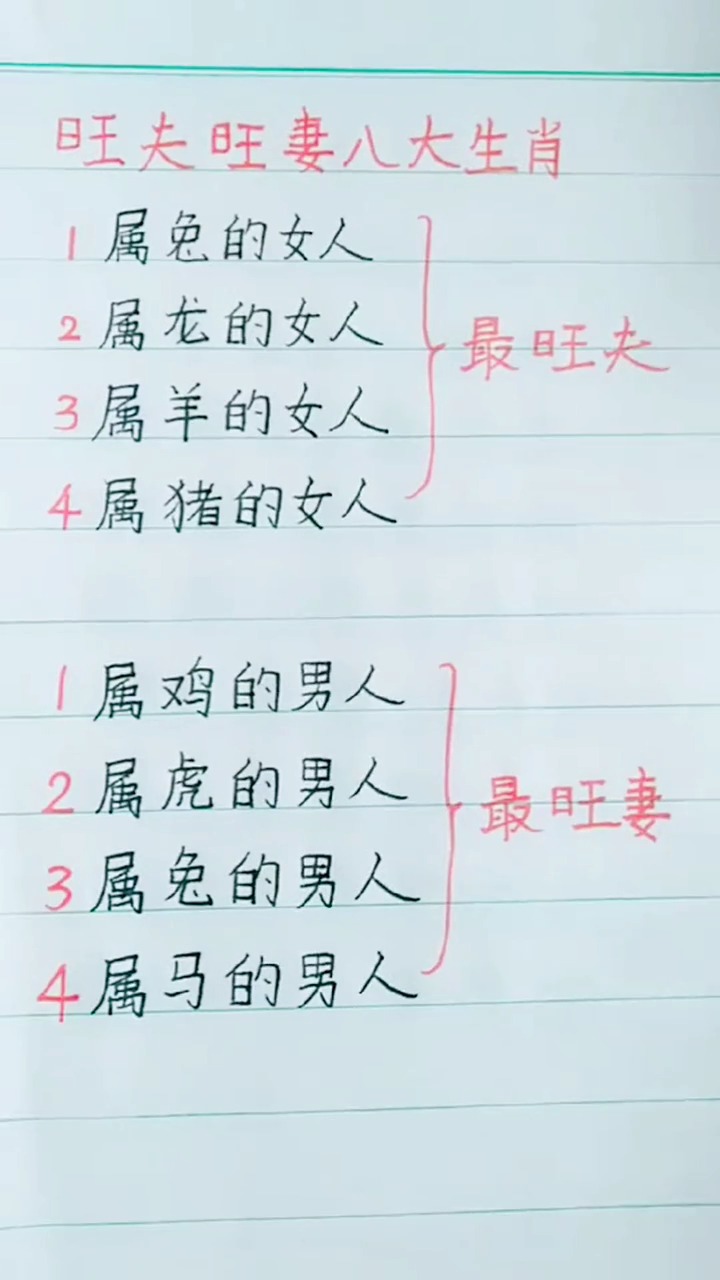 旺夫旺妻八大生肖
1 属兔的女人
2 属龙的女人
3 属羊的女人
4 属猪的女人
最旺夫
1 属鸡的男人
2 属虎的男人
3 属兔的男人
4 属马的男人
最旺妻